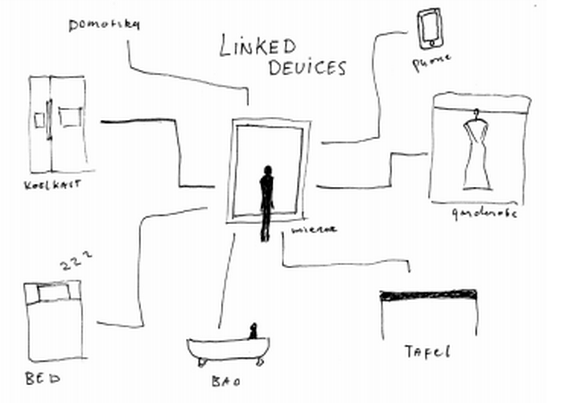 Domotika
LINKED
DEVICES
phone
KOELKAST
garderobe
mirror
zzz
BED
BAD
TAFEL